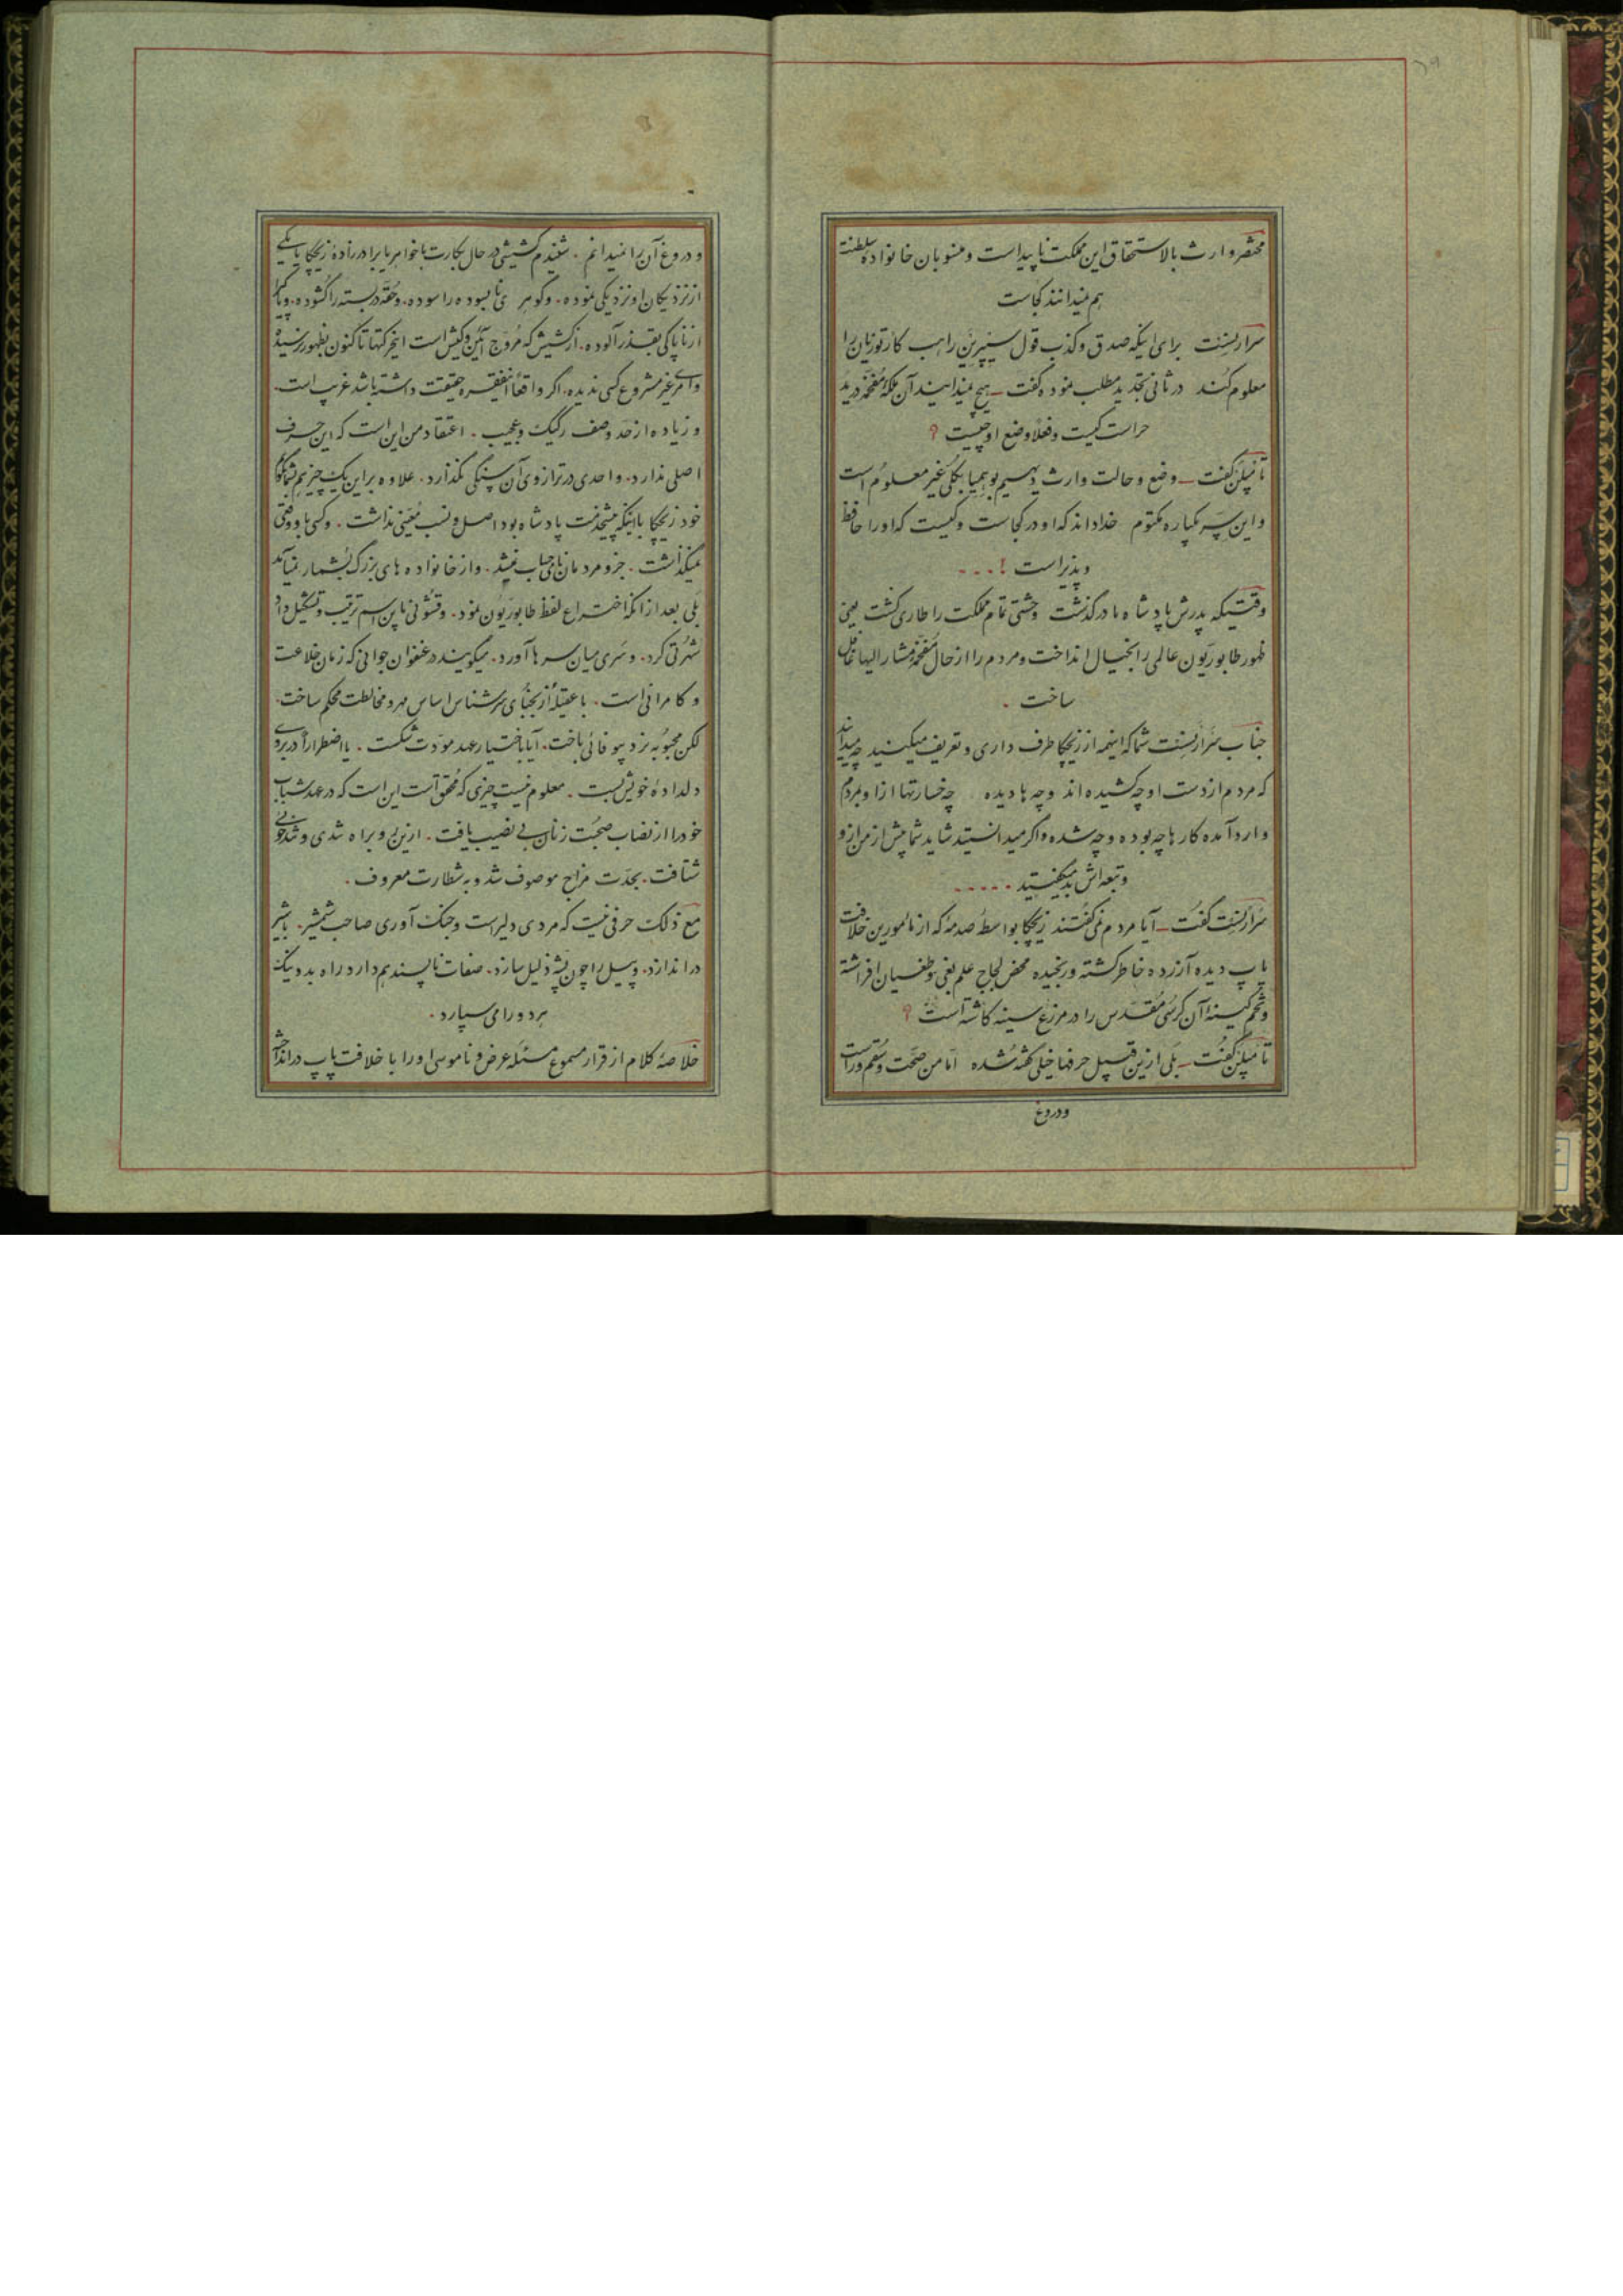 محتضر وارث بالاستحقاق این مملکت ناپیداست و منسوبان خانواده سلطنت
هم نمیدانند کجاست
سرارنست برای اینکه صدق و کذب قول سیپرین راهب کارتوزیان را
معلوم کند در ثانی تجدید مطلب نموده گفت ــ هیچ میدانید آن ملکه مفخمه در ید
حراست کیست و فعلا وضع او چیست ؟
تامپلن گفت ــ وضع و حالت وارث دیهیم بوهیمیا بکلی غیر معلوم است
و این سر یکباره مکتوم خدا داند که او در کجاست و کیست که او را حافظ
و پذیراست ! . . .
وقتیکه پدرش پادشاه ما درگذشت وحشتی تمام مملکت را طاری گشت یعنی
ظهور طابوریون عالمی را بخیال انداخت و مردم را از حال مفخمه مشار الیها غافل
ساخت .
جناب سرارنست شما که اینهمه از زیجکا طرف داری و تعریف میکنید چه میدانید
که مردم از دست او چه کشیده اند و چه ها دیده چه خسارتها از او بمردم
وارد آمده کارها چه بوده و چه شده و اگر میدانستید شاید شما بیش از من از او
و تبعه اش بد میگفتید . . . . .
سرارنست گفت ــ آیا مردم نمی گفتند زیجکا بواسطه صدمه که از مامورین خلافت
پاپ دیده آزرده خاطر گشته و رنجیده محض لجاج علم بغی و طغیان افراشته
و تخم کینه آن کرسی مقدس را در مزرع سینه کاشته است ؟
تامپلن گفت ــ بلی ازین قبیل حرفها خیلی گفته شده اما من صحت و سقم و راست
و دروغ
و دروغ آن را نمیدانم . شنیدم کشیشی در حال بکارت با خواهر یا برادرزاده زیجکا یا یکی
از نزدیکان او نزدیکی نموده . و گوهر نابسوده را سوده . و حقه دربسته را گشوده .
از ناپاکی بقذر آلوده . از کشیش که مروج آئین و کیش است اینحرکتها تاکنون بظهور نرسیده
و امر غیر مشروع کسی ندیده . اگر واقعا اینفقره حقیقت داشته باشد غریب است .
و زیاده از حد وصف رکیک و عجیب . اعتقاد من این است که این حرف
اصلی ندارد . و احدی در ترازوی آن سنگی نگذارد . علاوه بر این یک چیز هم بشما بگویم
خود زیجکا با اینکه پیشخدمت پادشاه بود اصل و نسب معینی نداشت . و کسی باو وقعی
نمیگذاشت . جزو مردمان نامی حساب نمیشد . و از خانواده های بزرگ بشمار نمیآمد
بلی بعد از آنکه اختراع لفظ طابوریون نمود . و قشونی باین اسم ترتیب و تشکیل داد
شهرتی کرد . و سری میان سرها آورد . میگویند در عنفوان جوانی که زمان خلاعت
و کامرانی است . با عقیله از نجبای سرشناس اساس مهر و مخالطت محکم ساخت .
لکن محبوبه نرد بیوفائی باخت . آیا باختیار عهد مودت شکست . یا اضطرارا در بروی
دلداده خویش بست . معلوم نیست چیزی که محقق است این است که در عهد شباب
خود را از نصاب صحبت زنان بی نصیب یافت . ازین رو براه تندی و تندخوئی
شتافت . بحدت مزاج موصوف شد و به شطارت معروف .
مع ذلک حرفی نیست که مردی دلیر است و جنگ آوری صاحب شمشیر . با شیر
در اندازد . و پیل را چون پشه ذلیل سازد . صفات ناپسند هم دارد راه بد و نیک
هر دو را می سپارد .
خلاصه کلام از قرار مسموع مسئله عرض و ناموسی او را با خلافت پاپ در انداخته